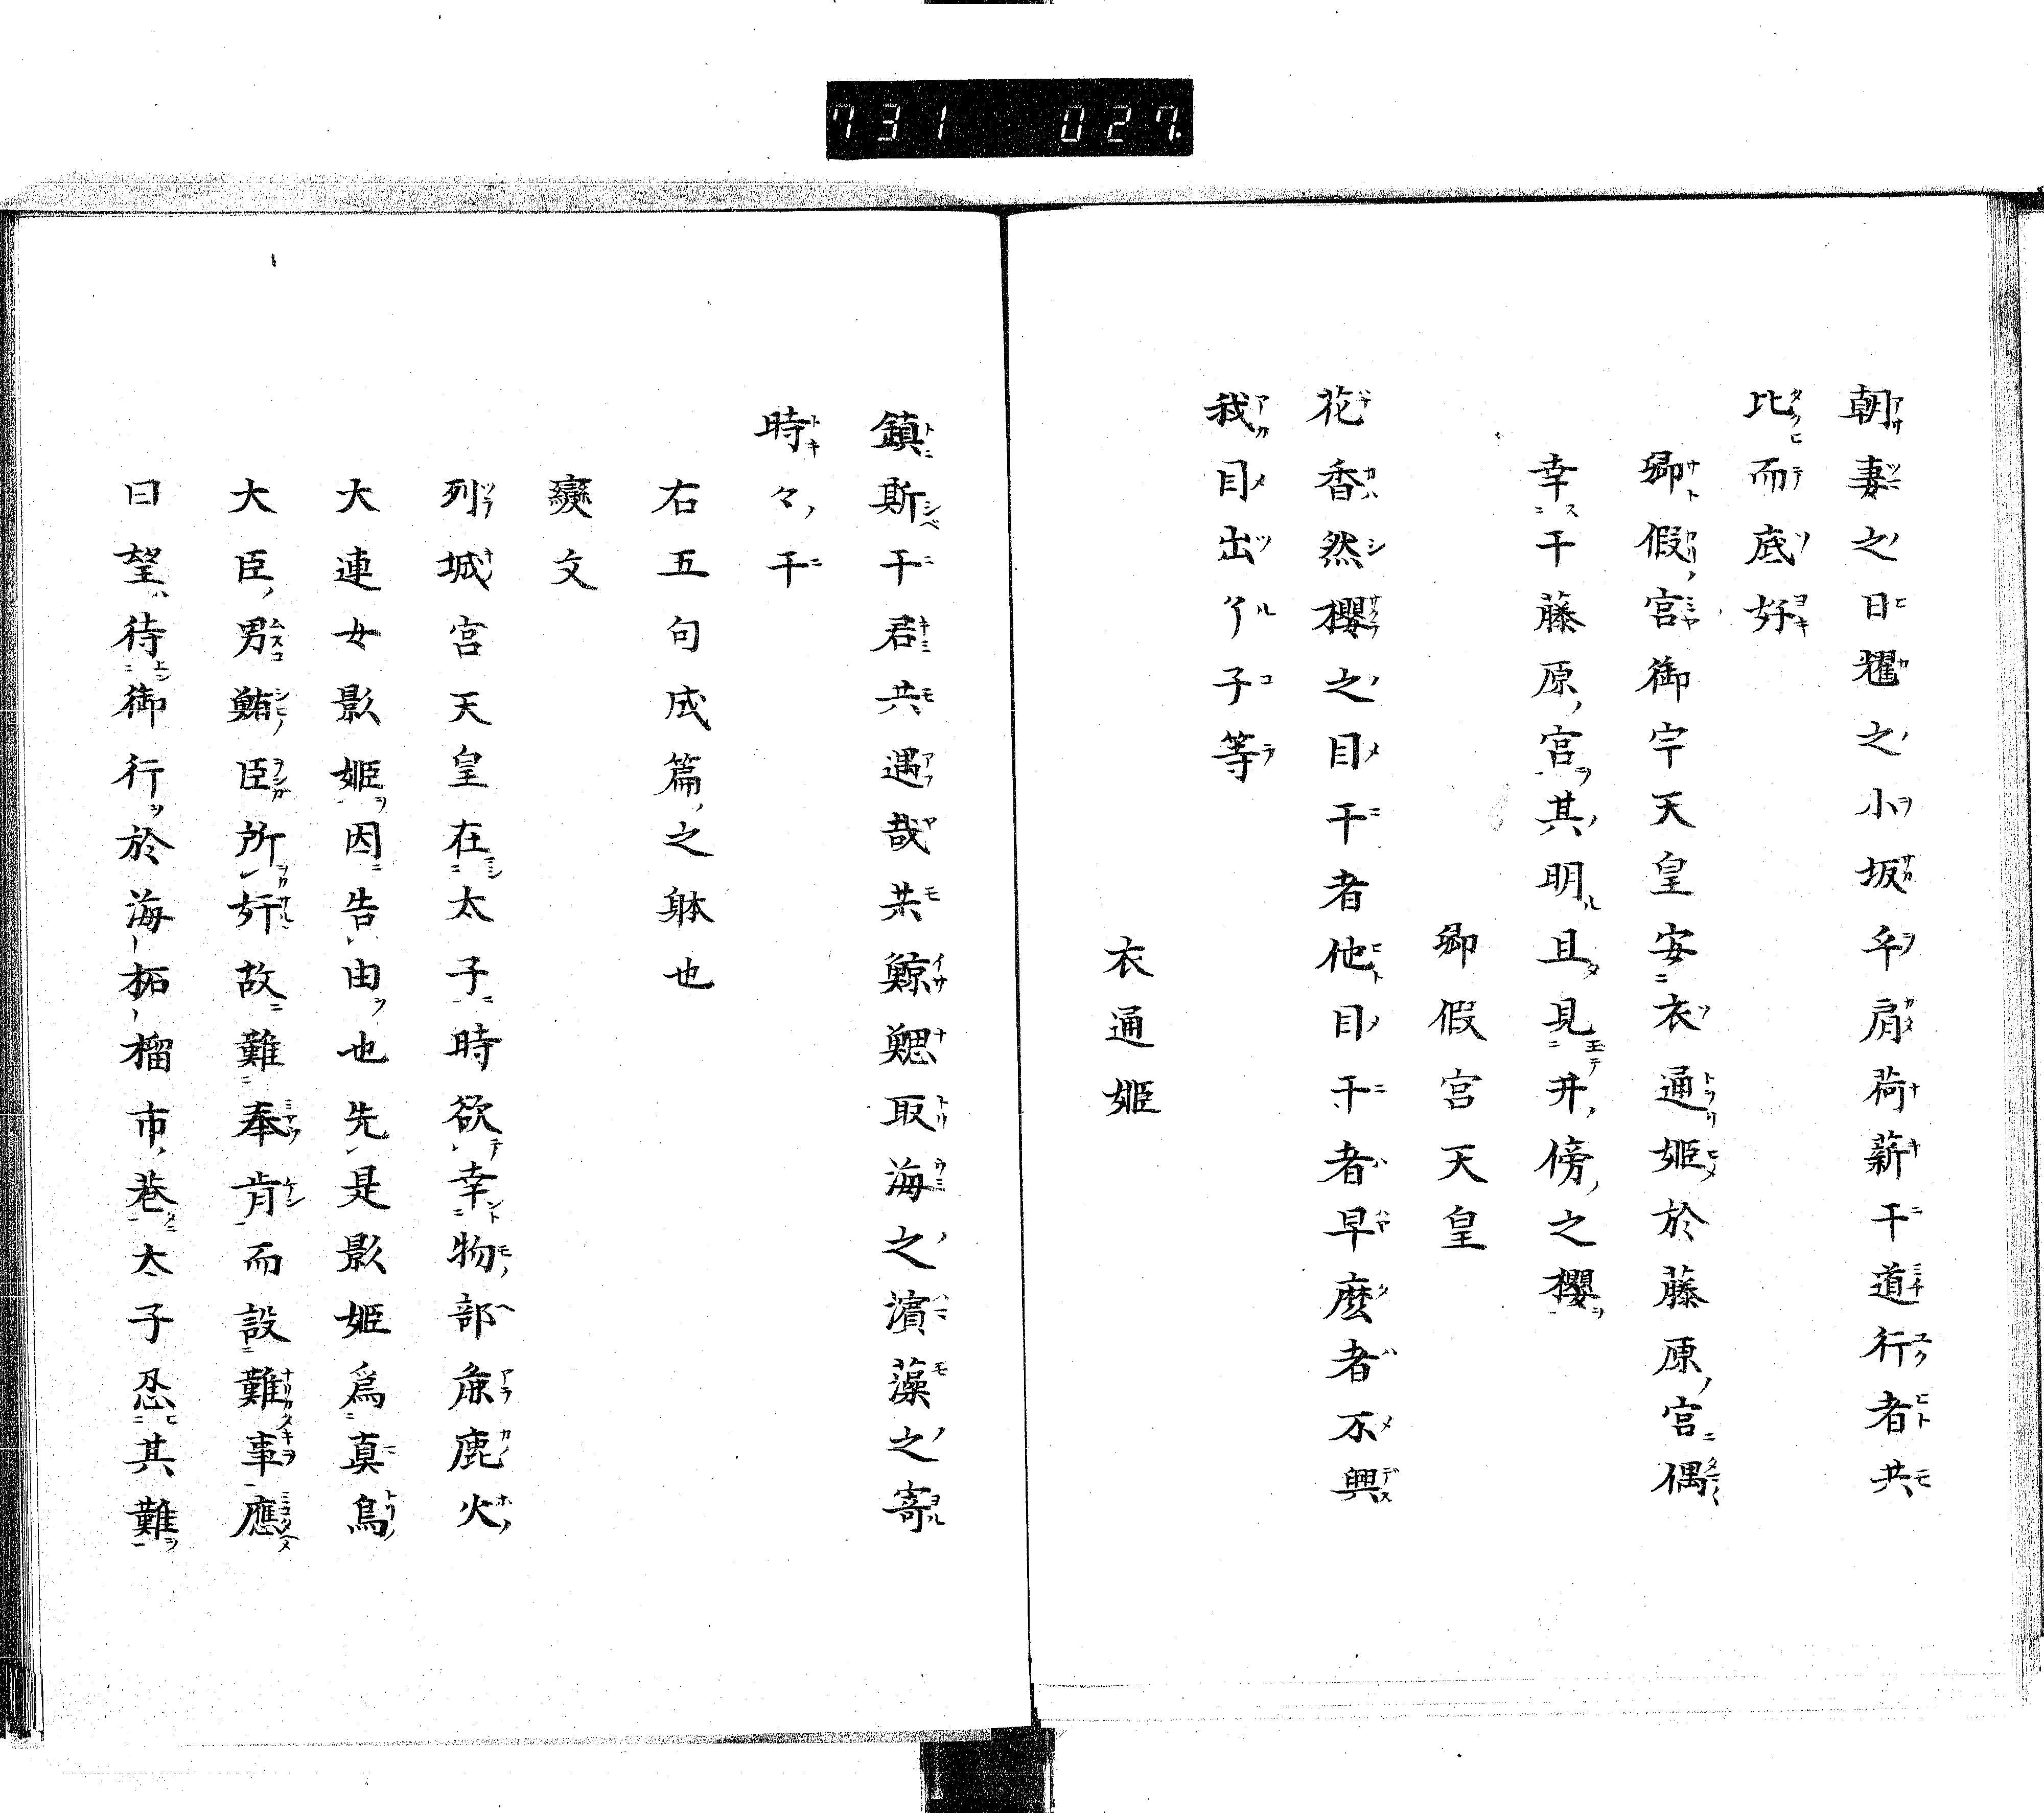 731 027.
朝妻之日耀之小坂乎肩荷薪干道行者共
比而底好
卿假宮御宇天皇安衣通姫於藤原宮偶
幸干藤原宮其明且見井傍之櫻
卿假宮天皇
花香然櫻之目干者他目干者早麼者不興
我目出介子等
衣通姫
鎮斯干君共遇哉共鯨鰓取海之濱藻之寄
時々干
右五句成篇之躰也
變文
列城宮天皇在太子時欲幸物部麁鹿火
大連女影姫因告由也先是影姫爲真鳥
大臣男鮪臣所奸故難奉肯而設難事應
曰望待御行於海柘榴市巷太子忍其難